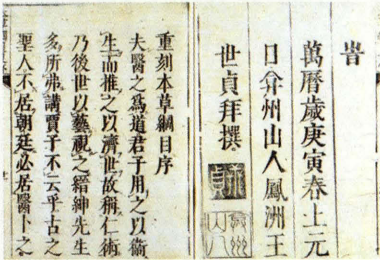 旹
萬曆歲庚寅春上元
日弇州山人鳳洲王
世貞拜撰
重刻本草綱目序
夫醫之爲道君子用之以衞
生而推之以濟世故稱仁術
乃後世以藝視之縉紳先生
多所弗講賈子不云乎古之
聖人不居朝廷必居醫卜之